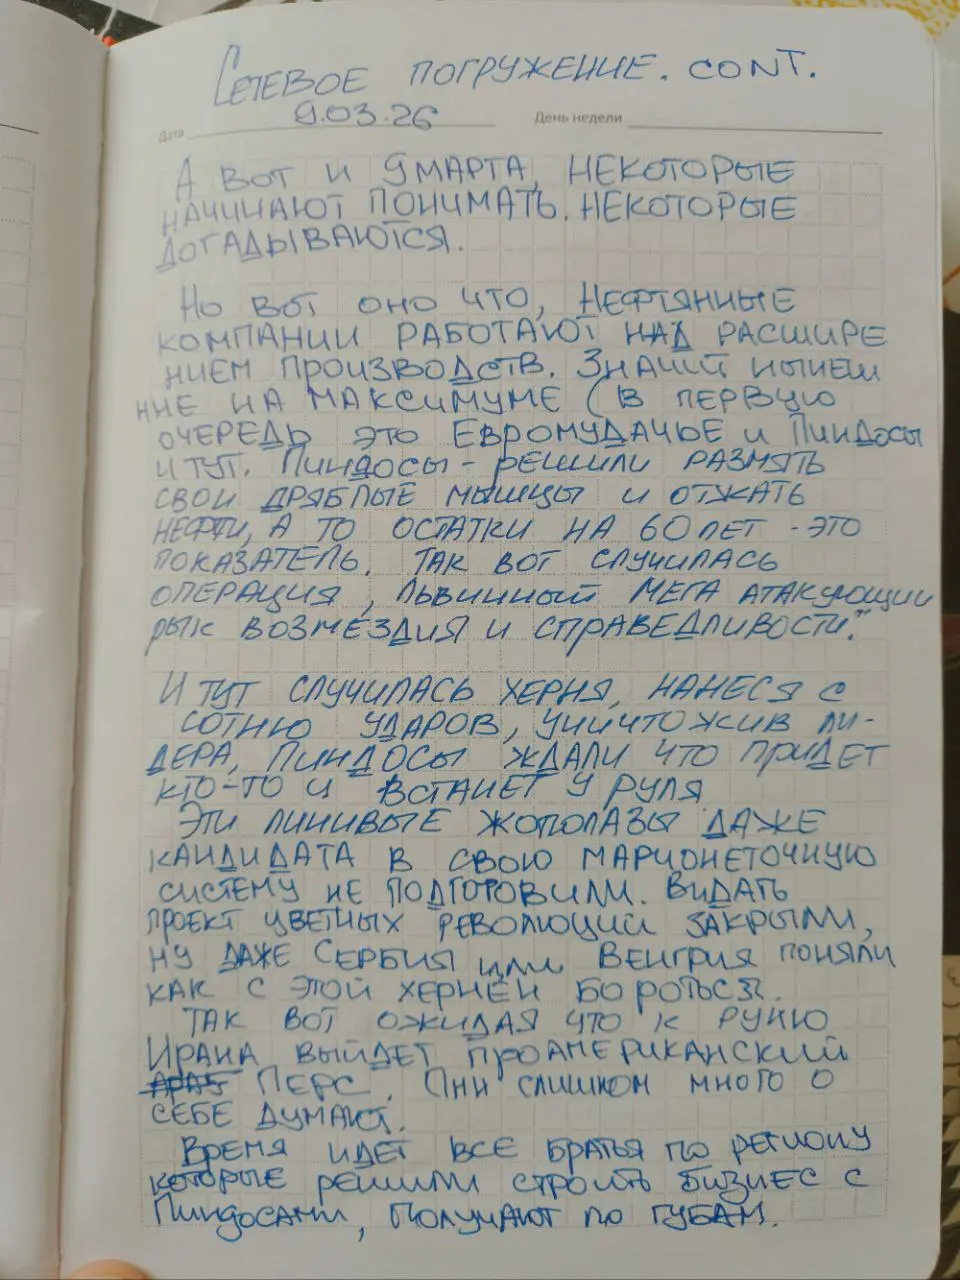 СЕТЕВОЕ ПОГРУЖЕНИЕ. CONT.
Дата 9.03.26 День недели
А ВОТ И 9 МАРТА, НЕКОТОРЫЕ
НАЧИНАЮТ ПОНИМАТЬ. НЕКОТОРЫЕ
ДОГАДЫВАЮТСЯ.
НО ВОТ ОНО ЧТО, НЕФТЯНЫЕ
КОМПАНИИ РАБОТАЮТ НАД РАСШИРЕ
НИЕМ ПРОИЗВОДСТВ. ЗНАЧИЙ НЫНЕШ
НИЕ НА МАКСИМУМЕ (В ПЕРВУЮ
ОЧЕРЕДЬ ЭТО ЕВРОМУДАЧЬЕ И ПИНДОСЫ
И ТУТ. ПИНДОСЫ - РЕШИЛИ РАЗМЯТЬ
СВОИ ДРЯБЛЫЕ МЫШЦЫ И ОТЖАТЬ
НЕФТИ, А ТО ОСТАТКИ НА 60 ЛЕТ - ЭТО
ПОКАЗАТЕЛЬ. ТАК ВОТ СЛУЧИЛАСЬ
ОПЕРАЦИЯ, ЛЬВИННЫЙ МЕГА АТАКУЮЩИЙ
РЫК ВОЗМЕЗДИЯ И СПРАВЕДЛИВОСТИ."
И ТУТ СЛУЧИЛАСЬ ХЕРНЯ, НАНЕСЯ С
СОТНЮ УДАРОВ, УНИЧТОЖИВ ЛИ-
ДЕРА, ПИНДОСЫ ЖДАЛИ ЧТО ПРИДЕТ
КТО-ТО И ВСТАНЕТ У РУЛЯ
ЭТИ ЛИНИВЫЕ ЖОПОЛАЗЫ ДАЖЕ
КАНДИДАТА В СВОЮ МАРИОНЕТОЧНУЮ
СИСТЕМУ НЕ ПОДГОТОВИЛИ. ВИДАТЬ
ПРОЕКТ ЦВЕТНЫХ РЕВОЛЮЦИЙ ЗАКРЫЛИ,
НУ ДАЖЕ СЕРБИЯ ИЛИ ВЕНГРИЯ ПОНЯЛИ
КАК С ЭТОЙ ХЕРНЕЙ БОРОТЬСЯ.
ТАК ВОТ ОЖИДАЯ ЧТО К РУЛЮ
ИРАНА ВЫЙДЕТ ПРОАМЕРИКАНСКИЙ
ПЕРС. СЛИШКОМ МНОГО О
СЕБЕ ДУМАЮТ.
ВРЕМЯ ИДЕТ ВСЕ БРАТЬЯ ПО РЕГИОНУ
КОТОРЫЕ РЕШИЛИ СТРОИТЬ БИЗНЕС С
ПИНДОСАМИ, ПОЛУЧАЮТ ПО ГУБАМ.